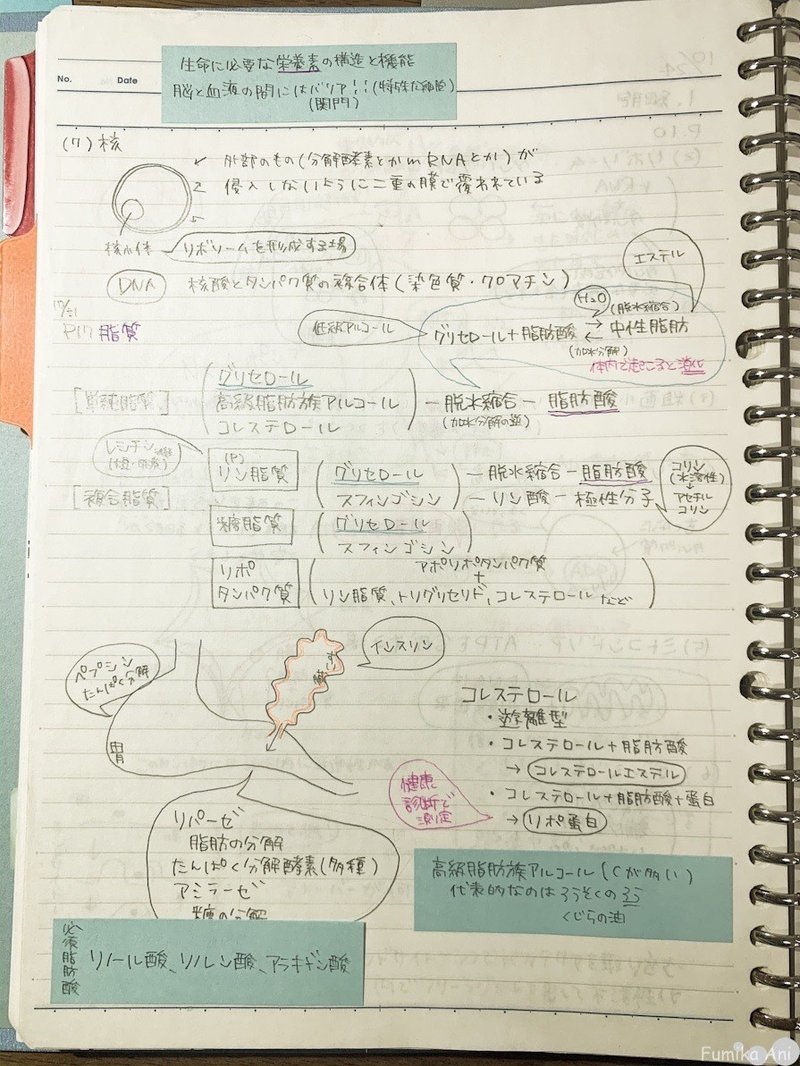 生命に必要な栄養素の構造と機能
脳と血液の間にはバリア!!(特殊な細胞)
(関門)
No.
Date
(7) 核
外部のもの(分解酵素とかmRNAとか)が
侵入しないように二重の膜で覆われている
核小体
リボソームを形成する場
DNA
核酸とタンパク質の複合体(染色質・クロマチン)
エステル
P17 脂質
低級アルコール
グリセロール+脂肪酸 ⇄ 中性脂肪
H₂O
(脱水縮合)
(加水分解)
体内で起こると消化
[単純脂質]
グリセロール
高級脂肪族アルコール
コレステロール
ー脱水縮合ー脂肪酸
(加水分解の逆)
レシチン
(大豆・卵黄)
[複合脂質]
(P)
リン脂質
グリセロール
スフィンゴシン
ー脱水縮合ー脂肪酸
ーリン酸ー極性分子
コリン
(水溶性)
↓
アセチル
コリン
糖脂質
グリセロール
スフィンゴシン
リポ
タンパク質
アポリポタンパク質
+
リン脂質、トリグリセリド、コレステロールなど
ペプシン
たんぱく分解
胃
すい臓
インスリン
コレステロール
・遊離型
・コレステロール+脂肪酸
→コレステロールエステル
・コレステロール+脂肪酸+蛋白
→リポ蛋白
健康
診断で
測定
リパーゼ
脂肪の分解
たんぱく分解酵素(多種)
アミラーゼ
糖の分解
高級脂肪族アルコール(Cが多い)
代表的なのはろうそくのろう
くじらの油
必須脂肪酸
リノール酸、リノレン酸、アラキドン酸
Fumika Ani